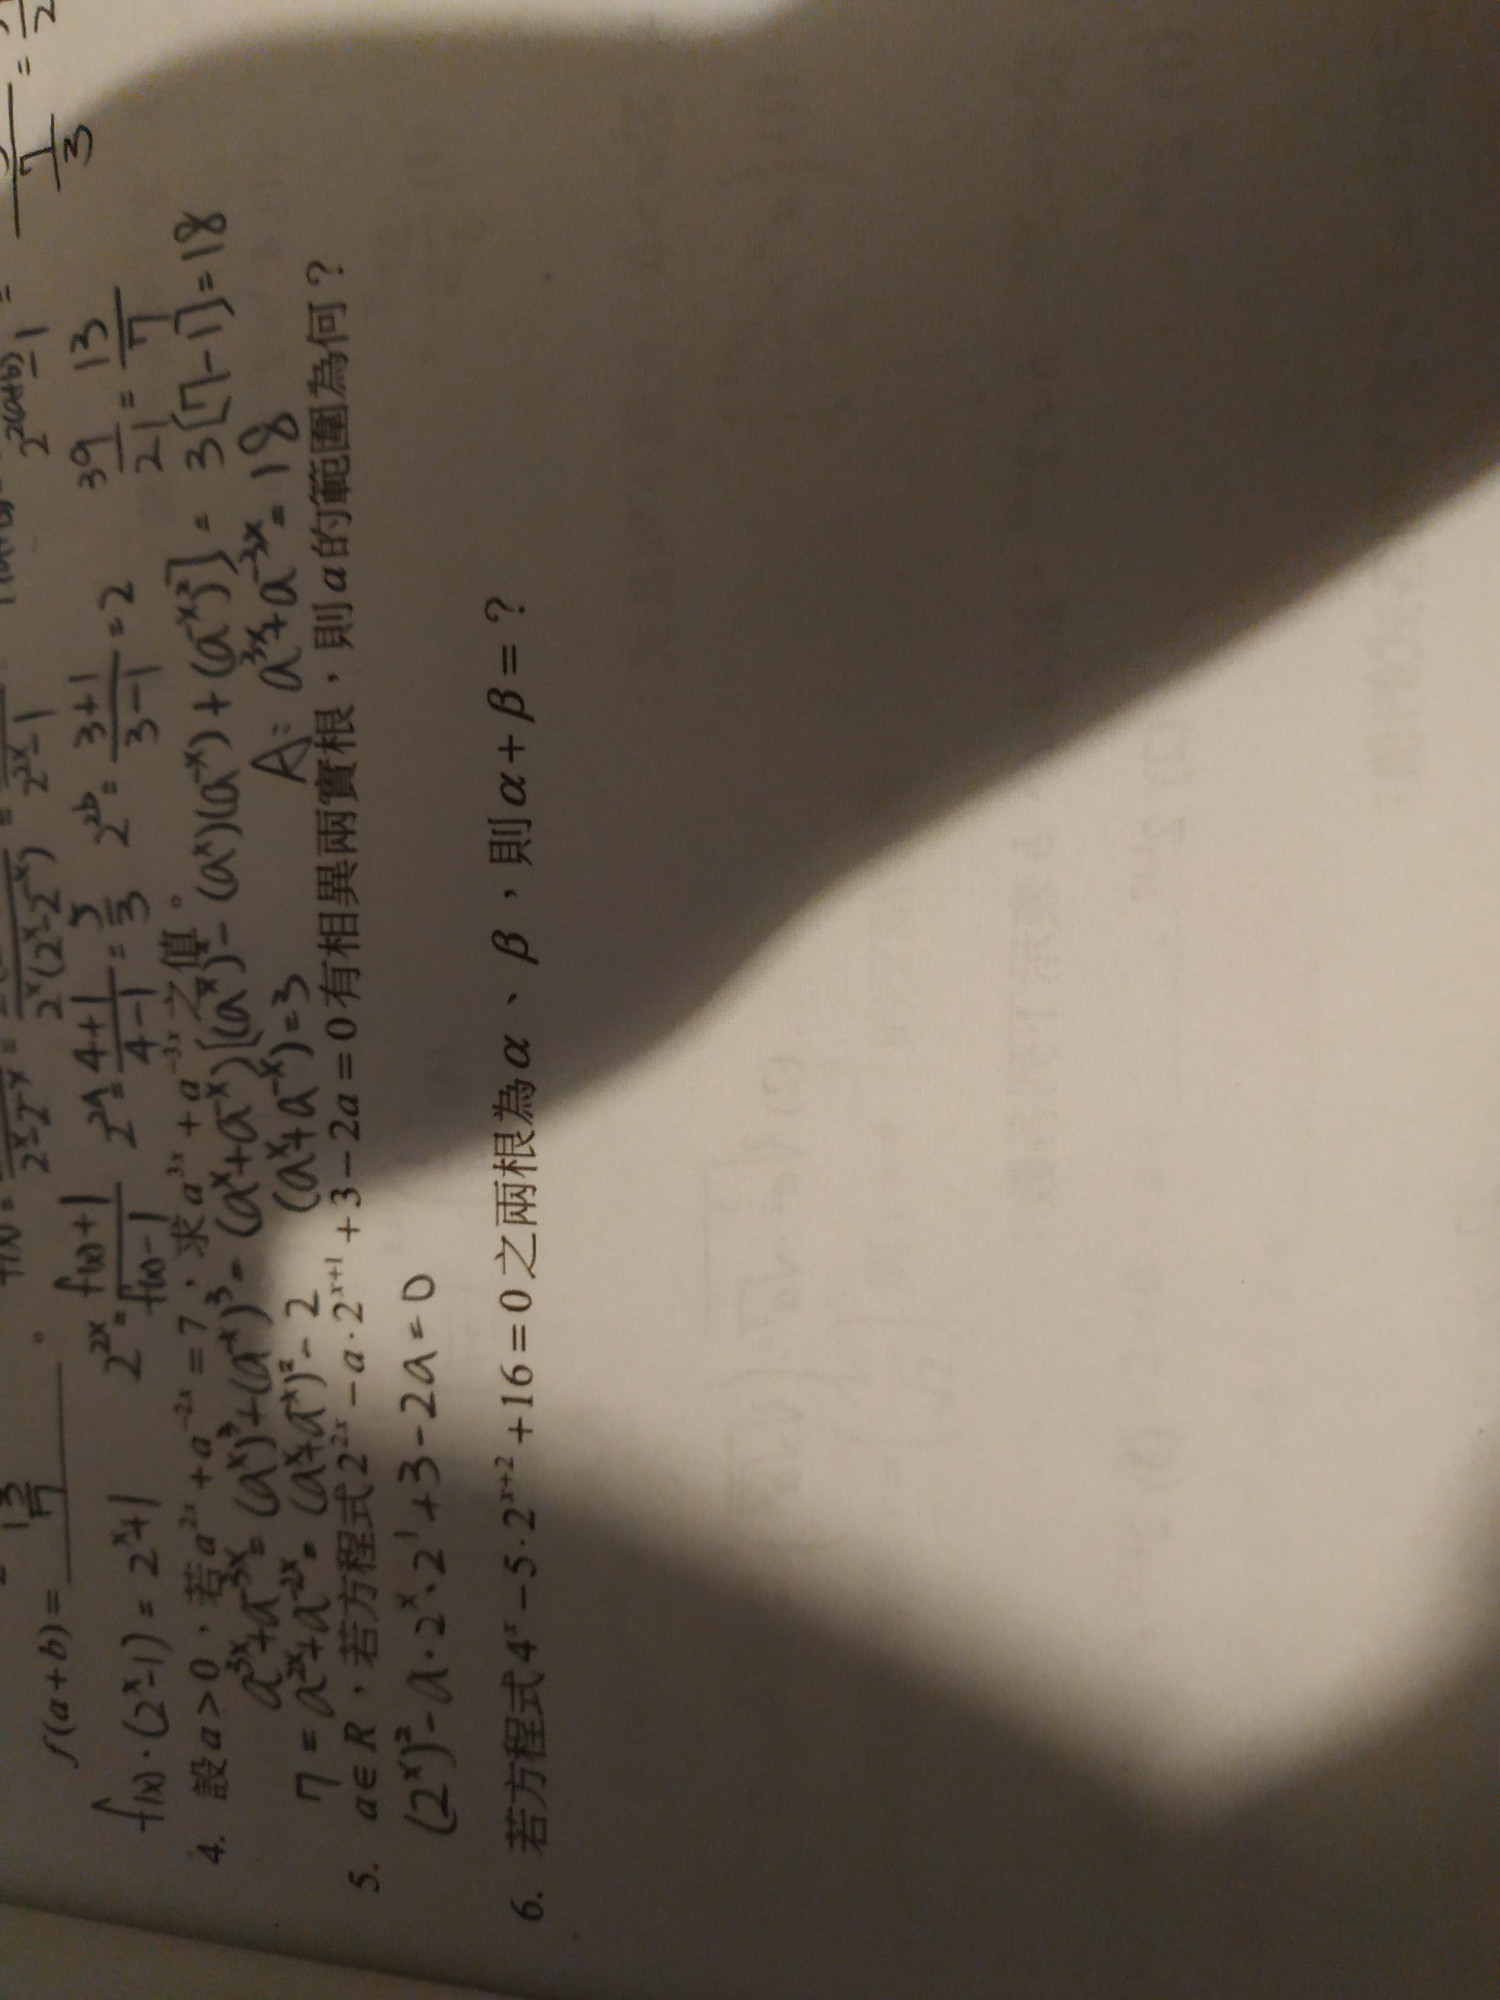 13
7
f(a+b)=________。
f(x)·(2ˣ-1)=2ˣ+1 2²ˣ=f(x)+1/f(x)-1 2²ᵃ=4+1/4-1=5/3 2²ᵇ=3+1/3-1=2 39/21=13/7
4. 設a>0,若a²ˣ+a⁻²ˣ=7,求a³ˣ+a⁻³ˣ之值。
a³ˣ+a⁻³ˣ=(aˣ)³+(a⁻ˣ)³=(aˣ+a⁻ˣ)[(aˣ)²-(aˣ)(a⁻ˣ)+(a⁻ˣ)²]=3[7-1]=18
7=a²ˣ+a⁻²ˣ=(aˣ+aˣ)²-2 (aˣ+a⁻ˣ)=3 A: a³ˣ+a⁻³ˣ=18
5. a∈R,若方程式2²ˣ-a·2ˣ⁺¹+3-2a=0有相異兩實根,則a的範圍為何?
(2ˣ)²-a·2ˣ·2¹+3-2a=0
6. 若方程式4ˣ-5·2ˣ⁺²+16=0之兩根為α、β,則α+β=?